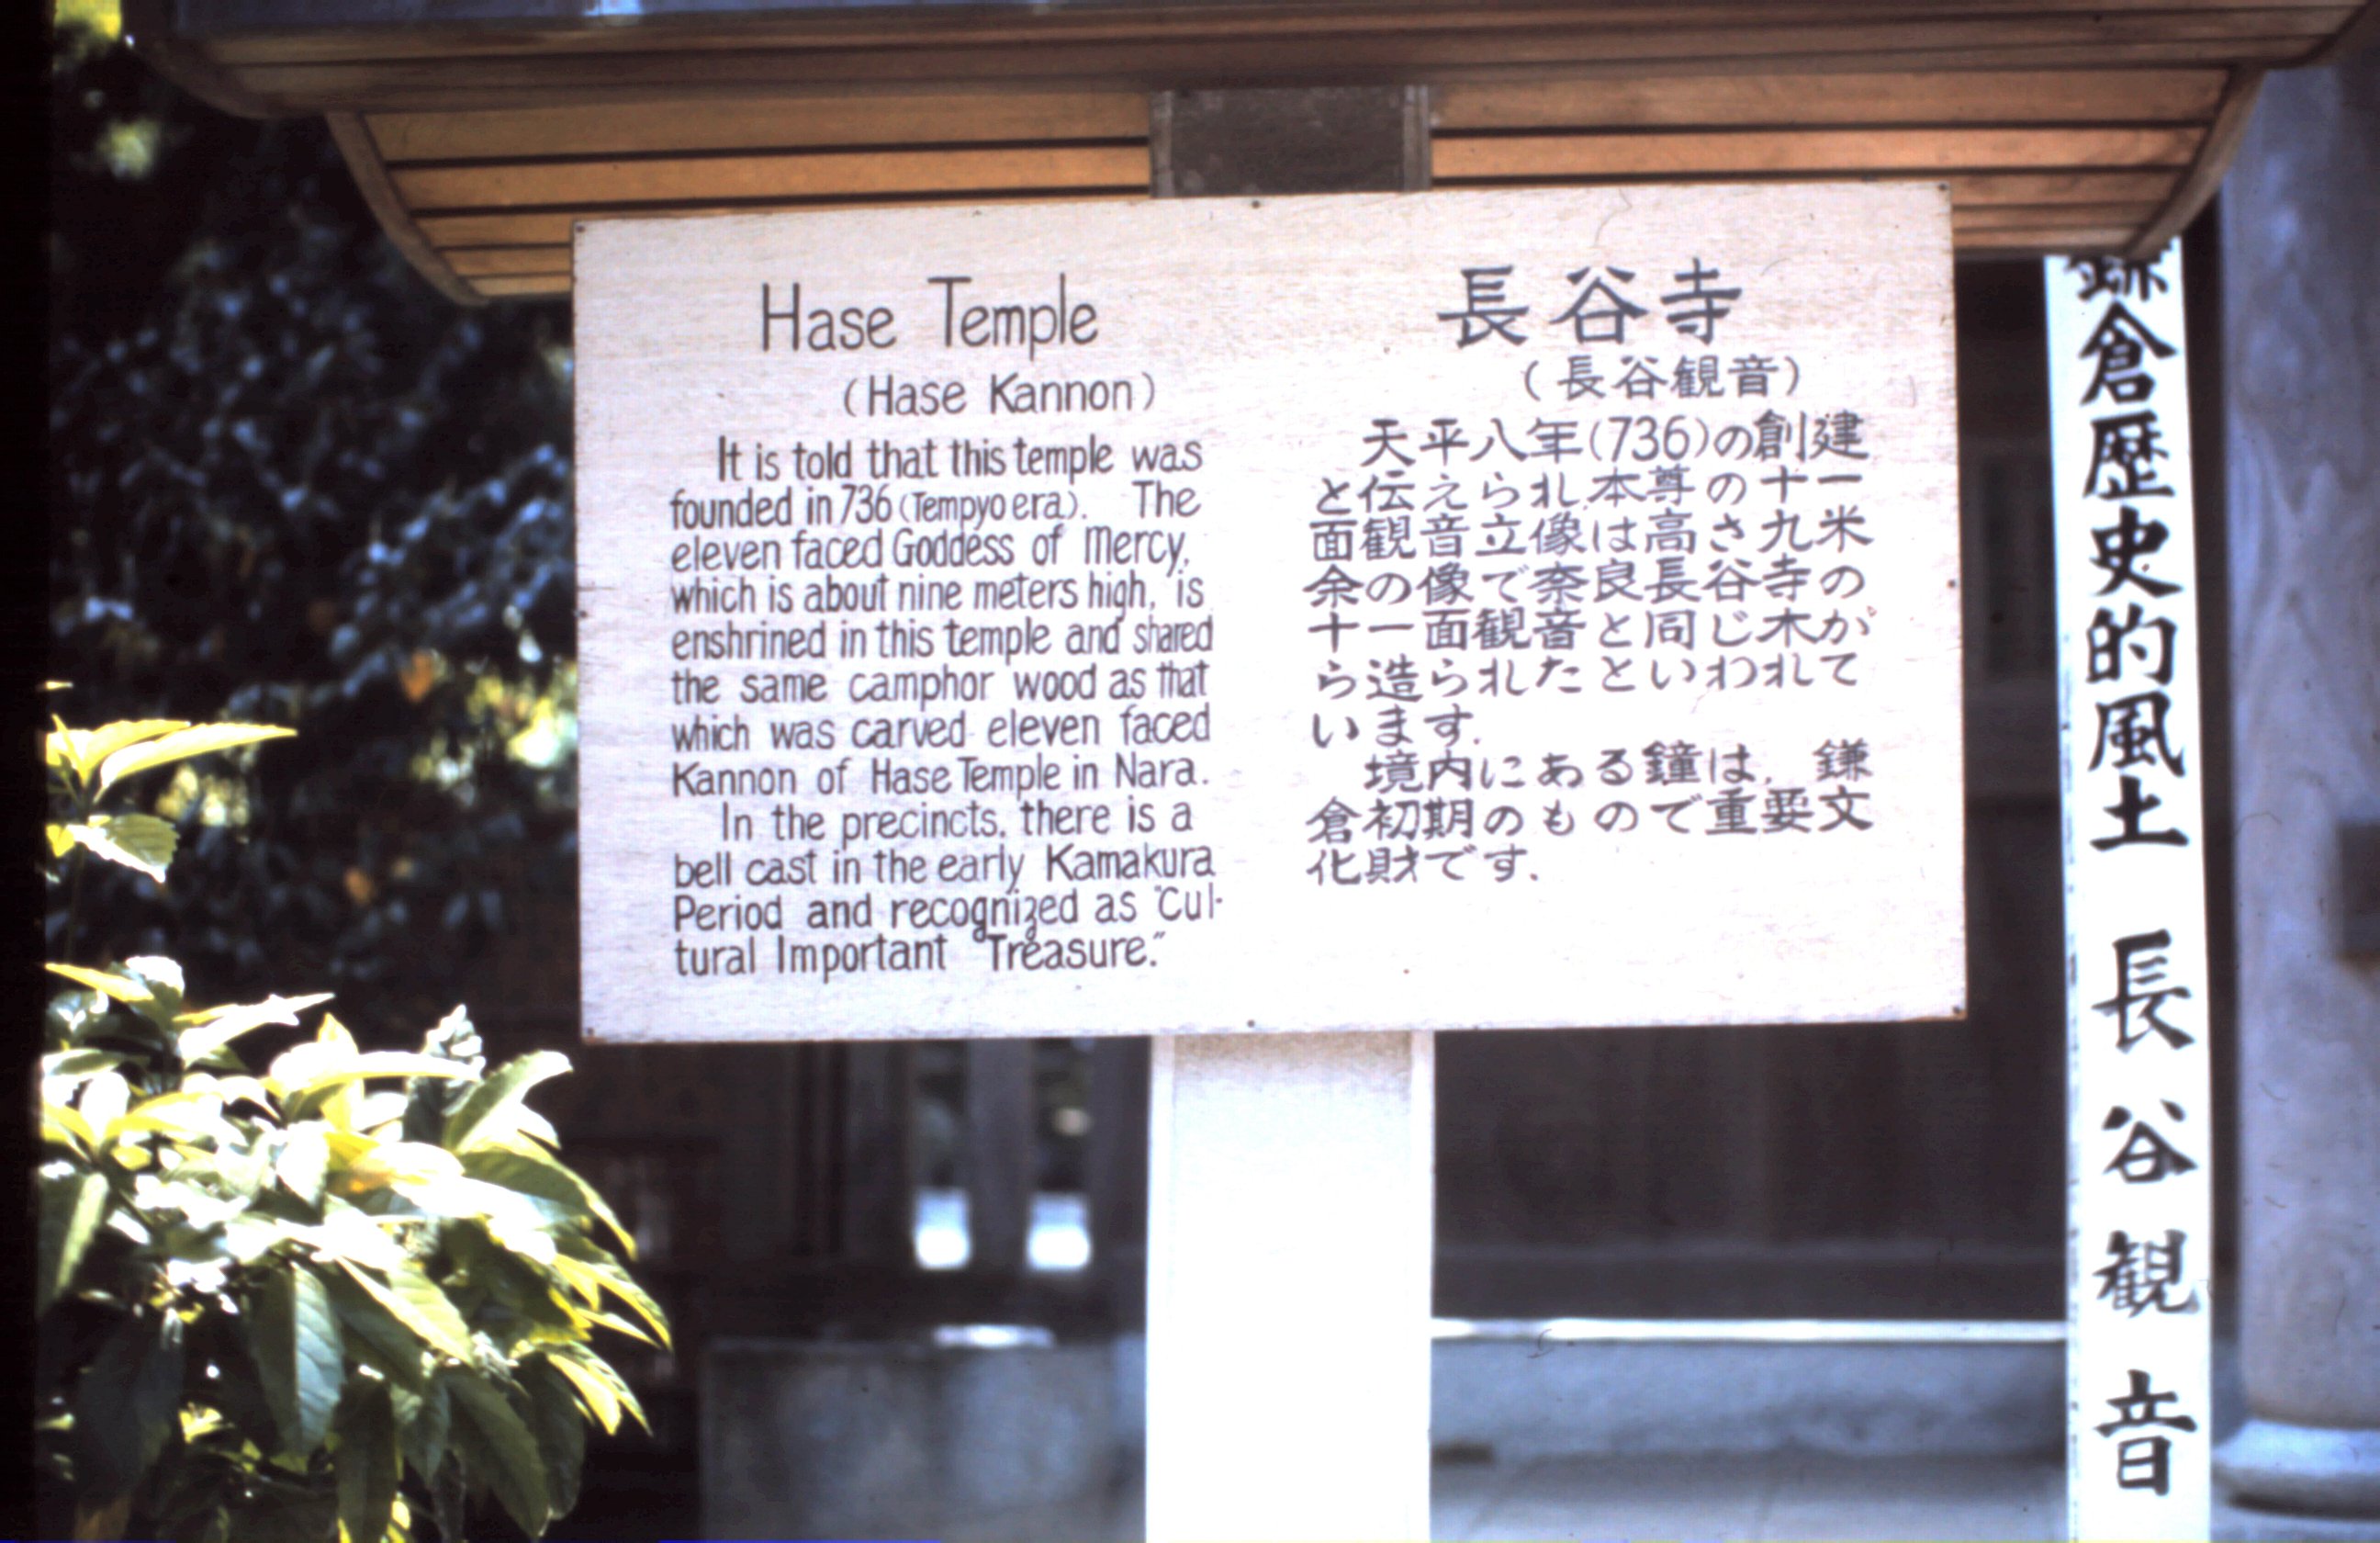 Hase Temple
(Hase Kannon)
It is told that this temple was
founded in 736 (Tempyo era). The
eleven faced Goddess of Mercy,
which is about nine meters high, is
enshrined in this temple and shared
the same camphor wood as that
which was carved eleven faced
Kannon of Hase Temple in Nara.
In the precincts, there is a
bell cast in the early Kamakura
Period and recognized as "Cul-
tural Important Treasure."
長谷寺
(長谷観音)
天平八年(736)の創建
と伝えられ,本尊の十一
面観音立像は高さ九米
余の像で奈良長谷寺の
十一面観音と同じ木か
ら造られたといわれて
います.
境内にある鐘は, 鎌
倉初期のもので重要文
化財です.
鎌倉歴史的風土 長谷観音